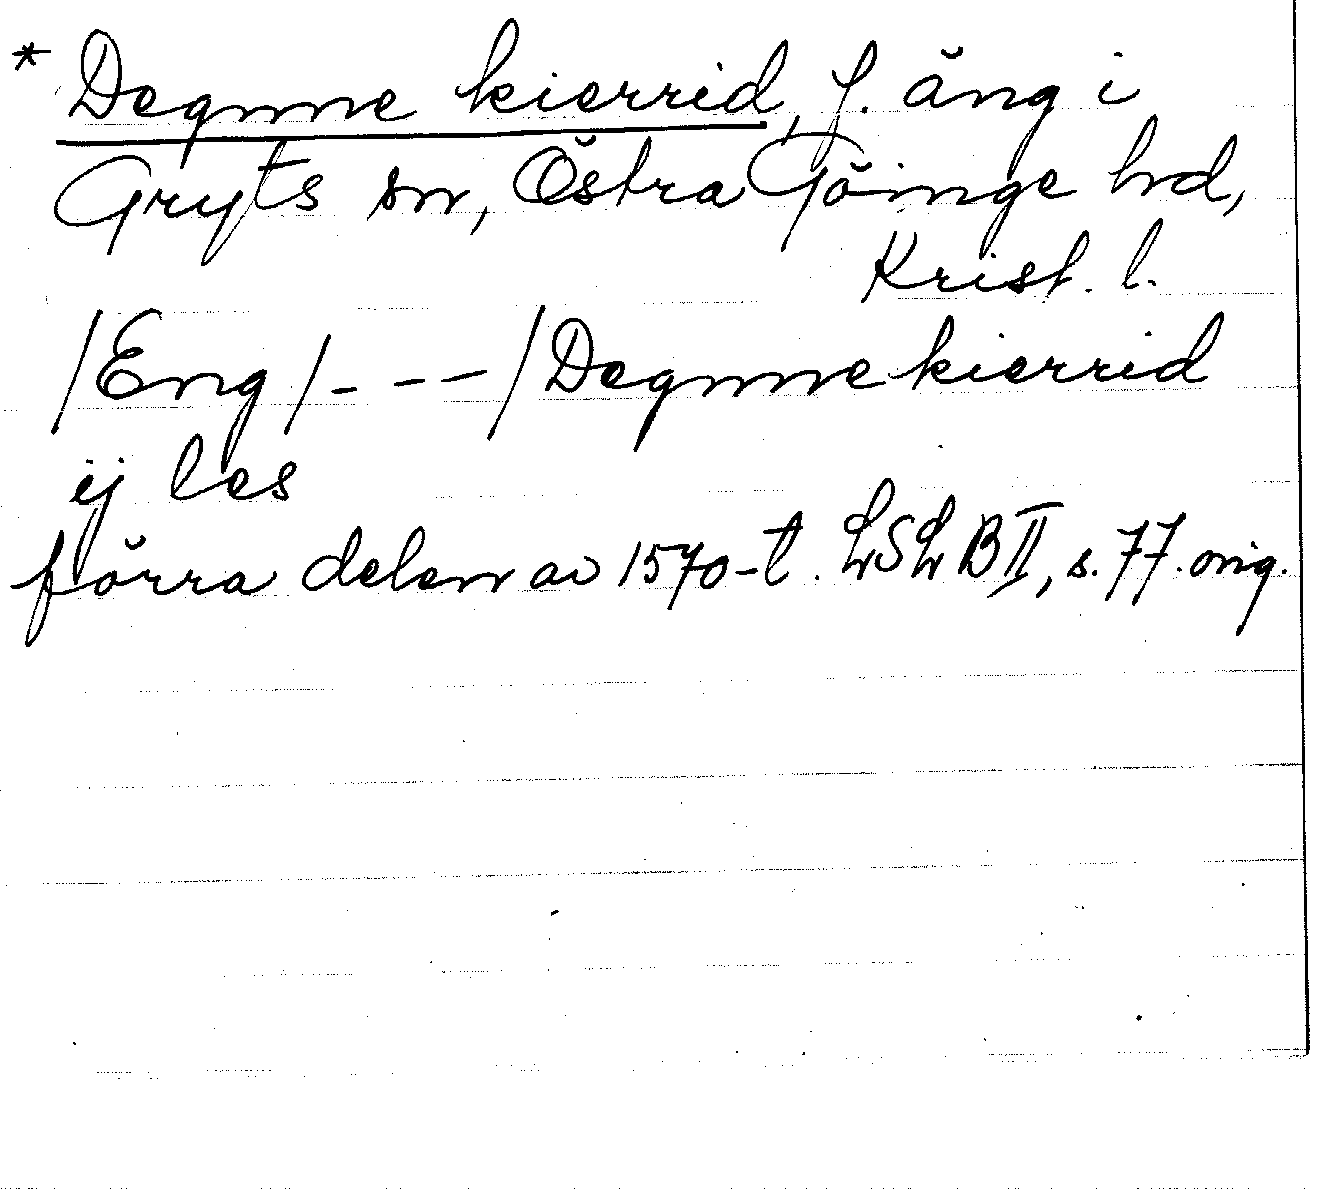 * Degnne kierrid, f. äng i
Gryts sn, Östra Göinge hd,
Krist. l.
/Eng/ - - - /Degnne kierrid
ij les
förra delen av 1570-t. LSLB II, s. 77. orig.